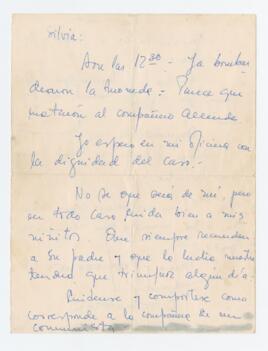 Silvia:
Son las 12 30 - Ya bombar
dearon la Moneda. - Parece que
mataron al compañero Allende
Yo espero en mi oficina con
la dignidad del caso. -
No se que será de mí, pero
en todo caso cuida bien a mis
niñitos. Que siempre recuerden
a su padre y que la lucha nuestra
tendrá que triunfar algún día. -
Cuídense y compórtese como
corresponde a la compañera de un
comunista